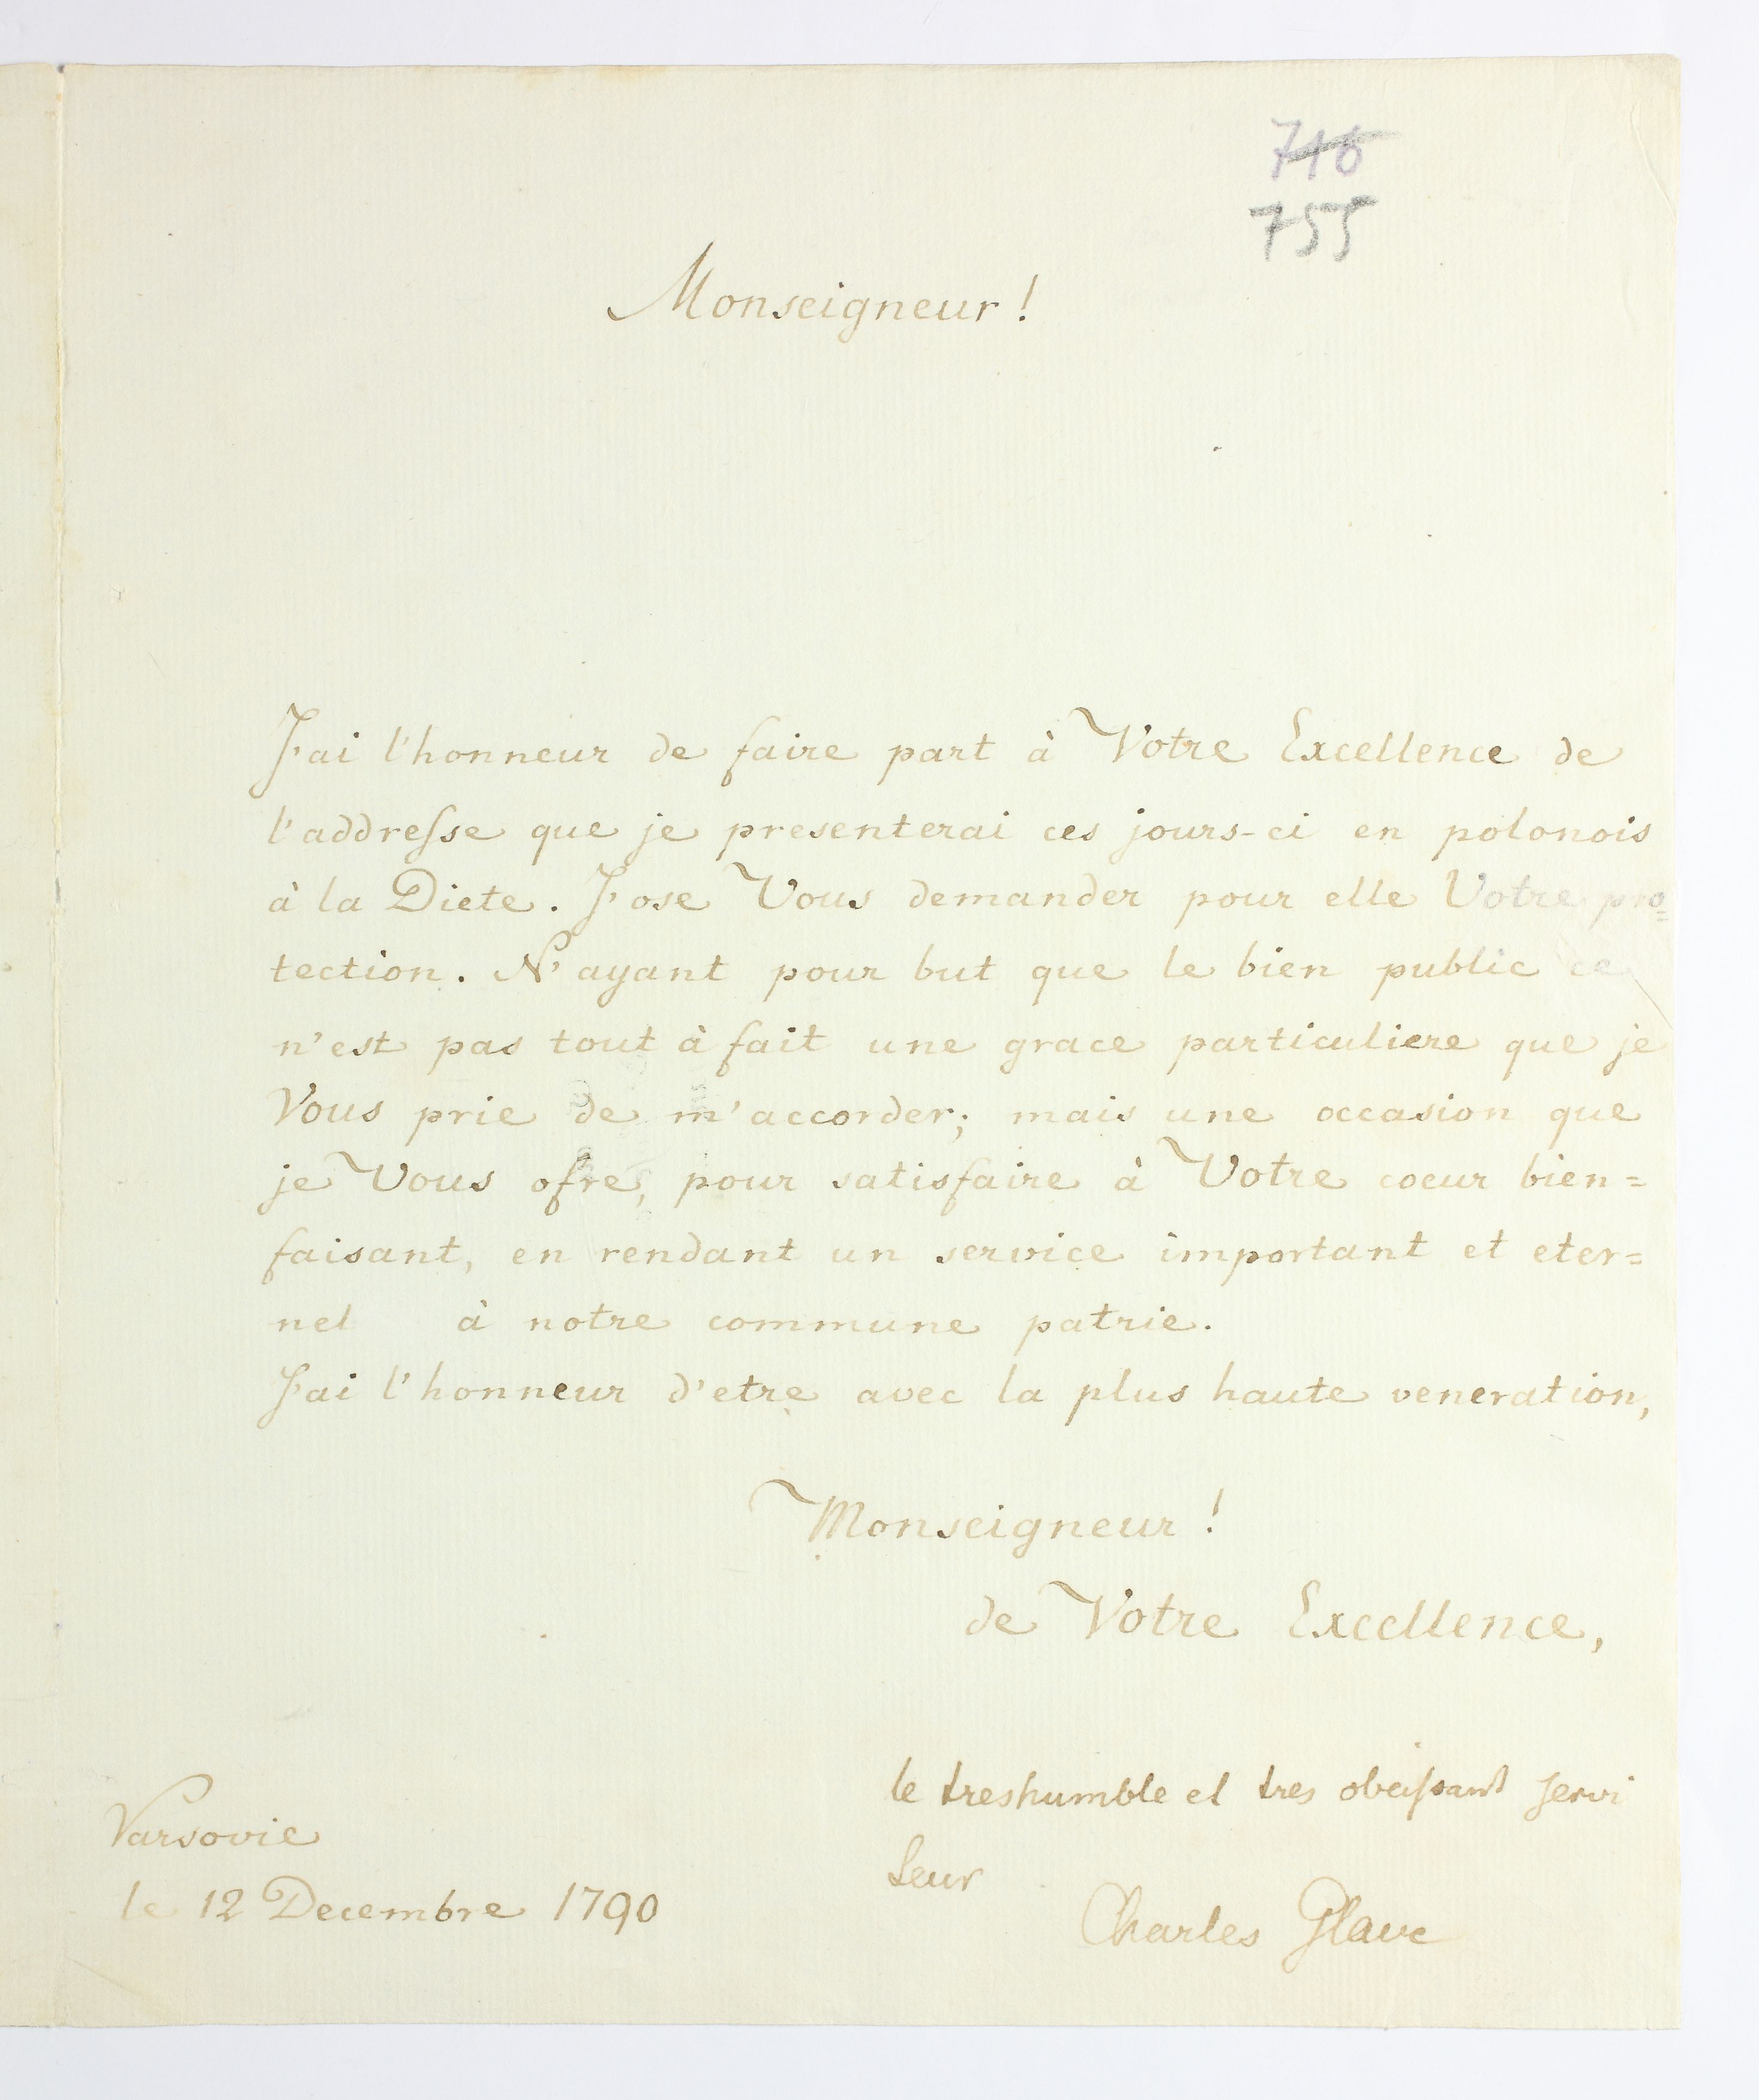 716
755
Monseigneur!
J'ai l'honneur de faire part à Votre Excellence de
l'addreſse que je presenterai ces jours-ci en polonois
à la Diete. J'ose Vous demander pour elle Votre pro=
tection. N'ayant pour but que le bien public ce
n'est pas tout à fait une grace particuliere que je
Vous prie de m'accorder; mais une occasion que
je Vous ofre, pour satisfaire à Votre coeur bien=
faisant, en rendant un service important et eter=
nel à notre commune patrie.
J'ai l'honneur d'etre avec la plus haute veneration,
Monseigneur!
de Votre Excellence,
le treshumble et tres obeiſsant servi
teur
Charles Glave
Varsovie
le 12 Decembre 1790